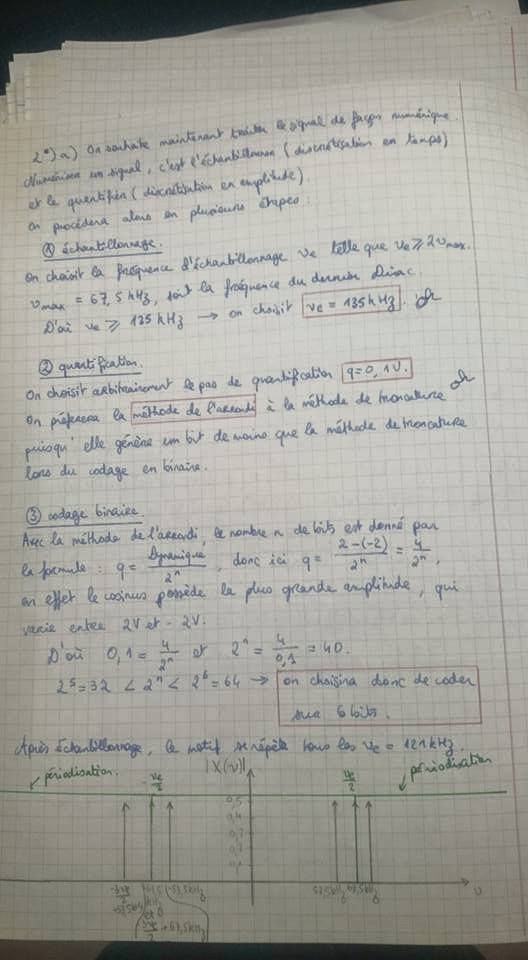 2°) a) On souhaite maintenant traiter le signal de façon numérique.
Numériser un signal, c'est l'échantillonner (discrétisation en temps)
et le quantifier (discrétisation en amplitude).
On procédera alors en plusieurs étapes :
① échantillonnage.
On choisit la fréquence d'échantillonnage νe telle que νe ≥ 2νmax.
νmax = 67,5 kHz, soit la fréquence du dernier Dirac.
D'où νe ≥ 135 kHz → on choisit νe = 135 kHz.
② quantification.
On choisit arbitrairement le pas de quantification q = 0,1V.
On préférera la méthode de l'arrondi à la méthode de troncature
puisqu'elle génère un bit de moins que la méthode de troncature
lors du codage en binaire.
③ codage binaire.
Avec la méthode de l'arrondi, le nombre n de bits est donné par
la formule : q = Dynamique / 2^n, donc ici q = 2-(-2) / 2^n = 4 / 2^n,
en effet le cosinus possède la plus grande amplitude, qui
varie entre 2V et -2V.
D'où 0,1 = 4 / 2^n et 2^n = 4 / 0,1 = 40.
2^5 = 32 < 2^n < 2^6 = 64 → on choisira donc de coder
sur 6 bits.
Après échantillonnage, le motif se répète tous les νe = 121 kHz.
périodisation. -νe/2 |X(ν)| νe/2 périodisation
0,5
0,4
ν